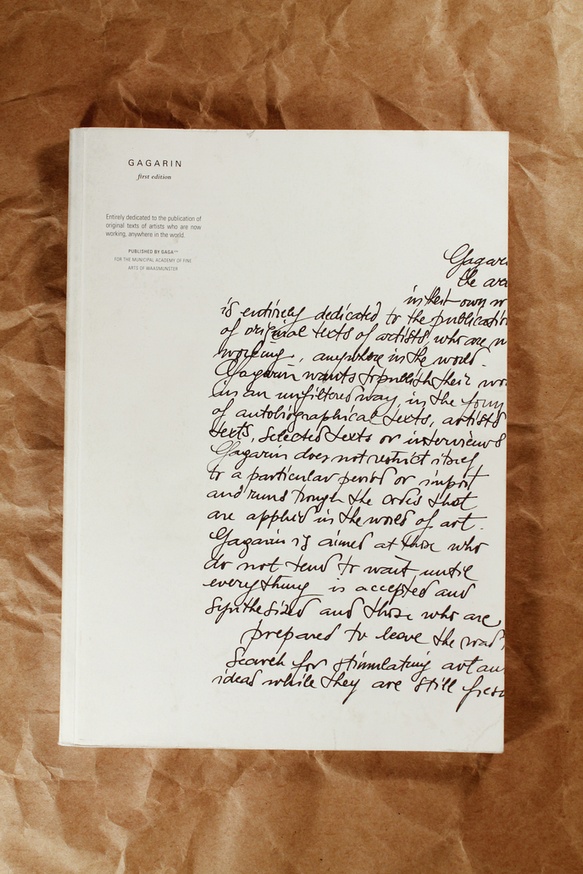 GAGARIN
first edition
Entirely dedicated to the publication of
original texts of artists who are now
working, anywhere in the world.
PUBLISHED BY GAGA
FOR THE MUNICIPAL ACADEMY OF FINE
ARTS OF WAASMUNSTER
Gagari
the
in their own w
is entirely dedicated to the publicatio
of original texts of artists, who are n
working, anywhere in the world.
Gagarin wants to publish their wo
in an unfiltered way, in the form
of autobiographical texts, artists
texts, selected texts or interviews
Gagarin does not restrict itself
to a particular period or import
and runs trough the codes that
are applied in the world of art.
Gagarin is aimed at those who
do not tend to wait until
everything is accepted and
synthesized and those who are
prepared to leave the road
search for stimulating art an
ideas while they are still fres